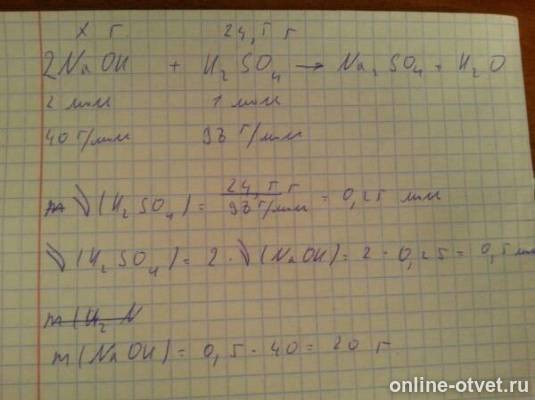 x г 24,5 г
2NaOH + H₂SO₄ → Na₂SO₄ + H₂O
2 моль 1 моль
40 г/моль 98 г/моль
ν(H₂SO₄) = 24,5 г / 98 г/моль = 0,25 моль
ν(H₂SO₄) = 2 · ν(NaOH) = 2 · 0,25 = 0,5 моль
m(H₂N
m(NaOH) = 0,5 · 40 = 20 г.
online-otvet.ru